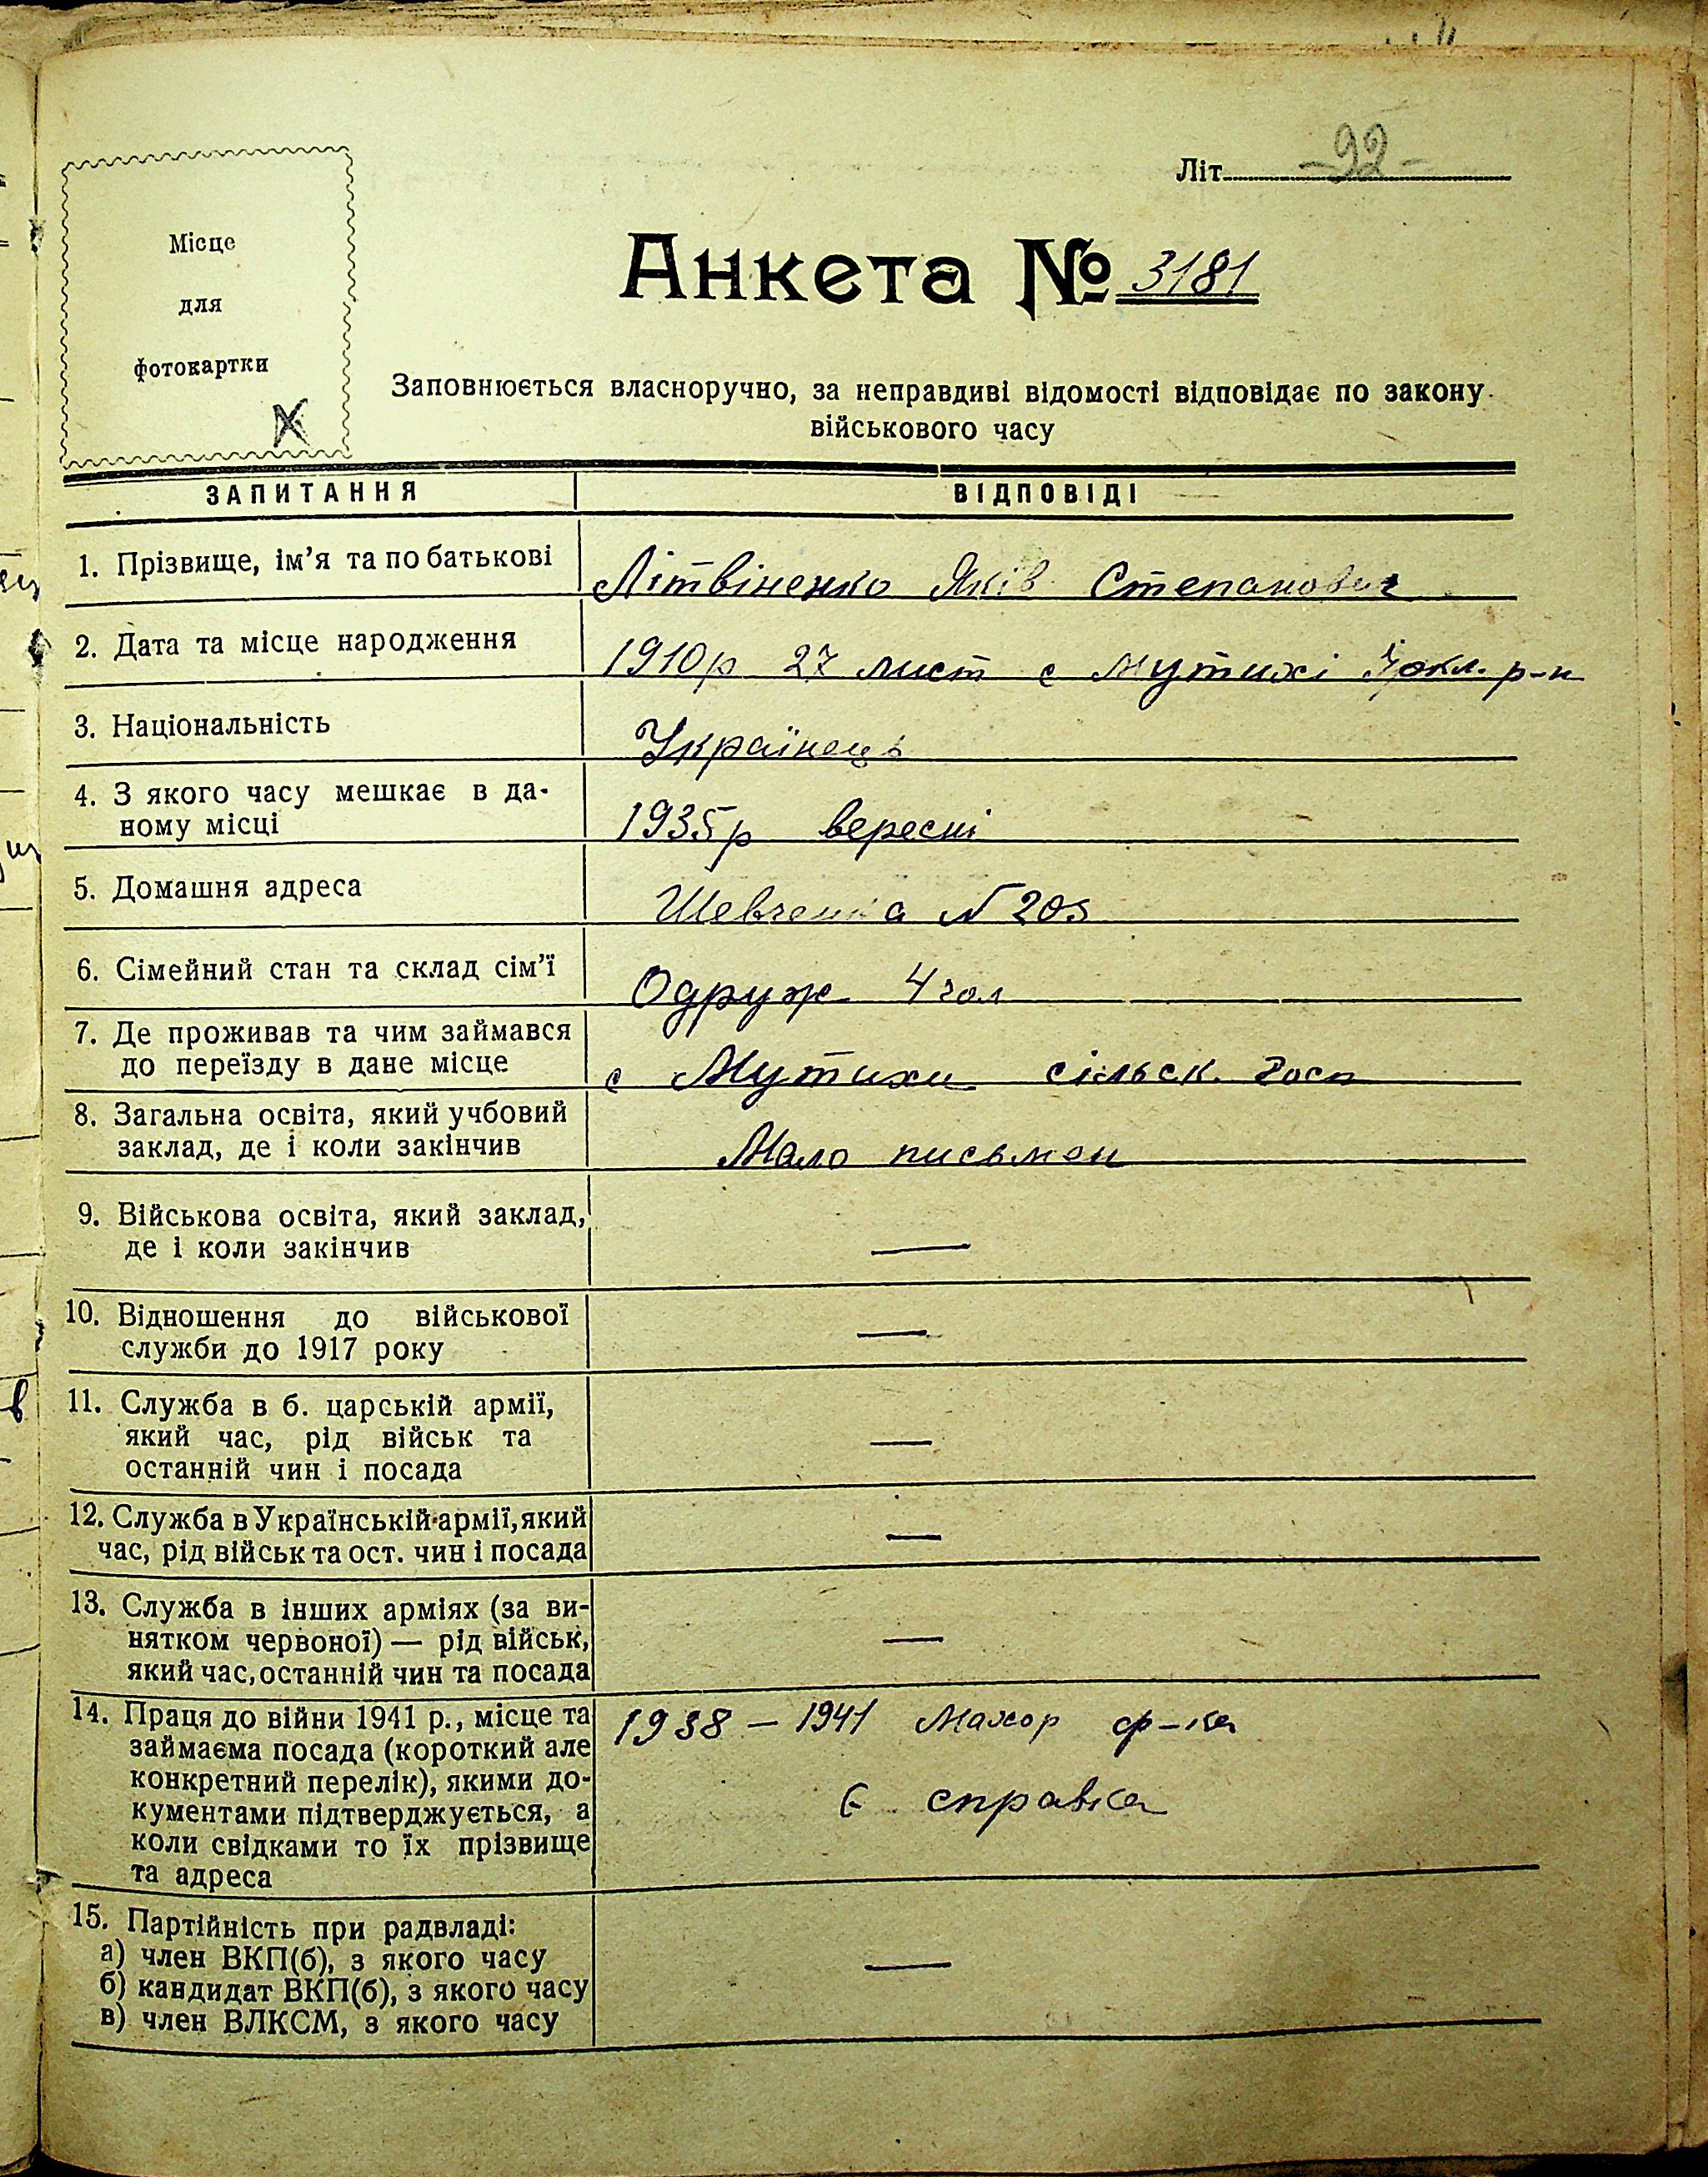 Літ. -92-
Місце
для
фотокартки
Анкета № 3181
Заповнюється власноручно, за неправдиві відомості відповідає по закону
військового часу
ЗАПИТАННЯ ВІДПОВІДІ
1. Прізвище, ім'я та по батькові Літвіненко Яків Степанович
2. Дата та місце народження 1910р 27 лист с Мутихі Іркл. р-н
3. Національність Українець
4. З якого часу мешкає в да-
ному місці 1935р вересні
5. Домашня адреса Шевченка N 203
6. Сімейний стан та склад сім'ї Одруж 4 чол
7. Де проживав та чим займався
до переїзду в дане місце с Мутихи сільск. госп
8. Загальна освіта, який учбовий
заклад, де і коли закінчив Мало письмен
9. Військова освіта, який заклад,
де і коли закінчив —
10. Відношення до військової
служби до 1917 року —
11. Служба в б. царській армії,
який час, рід військ та
останній чин і посада —
12. Служба в Українській армії, який
час, рід військ та ост. чин і посада —
13. Служба в інших арміях (за ви-
нятком червоної) — рід військ,
який час, останній чин та посада —
14. Праця до війни 1941 р., місце та 1938 – 1941 Махор ф-ка
займаєма посада (короткий але
конкретний перелік), якими до- Є справка
кументами підтверджується, а
коли свідками то їх прізвище
та адреса
15. Партійність при радвладі:
а) член ВКП(б), з якого часу —
б) кандидат ВКП(б), з якого часу
в) член ВЛКСМ, з якого часу